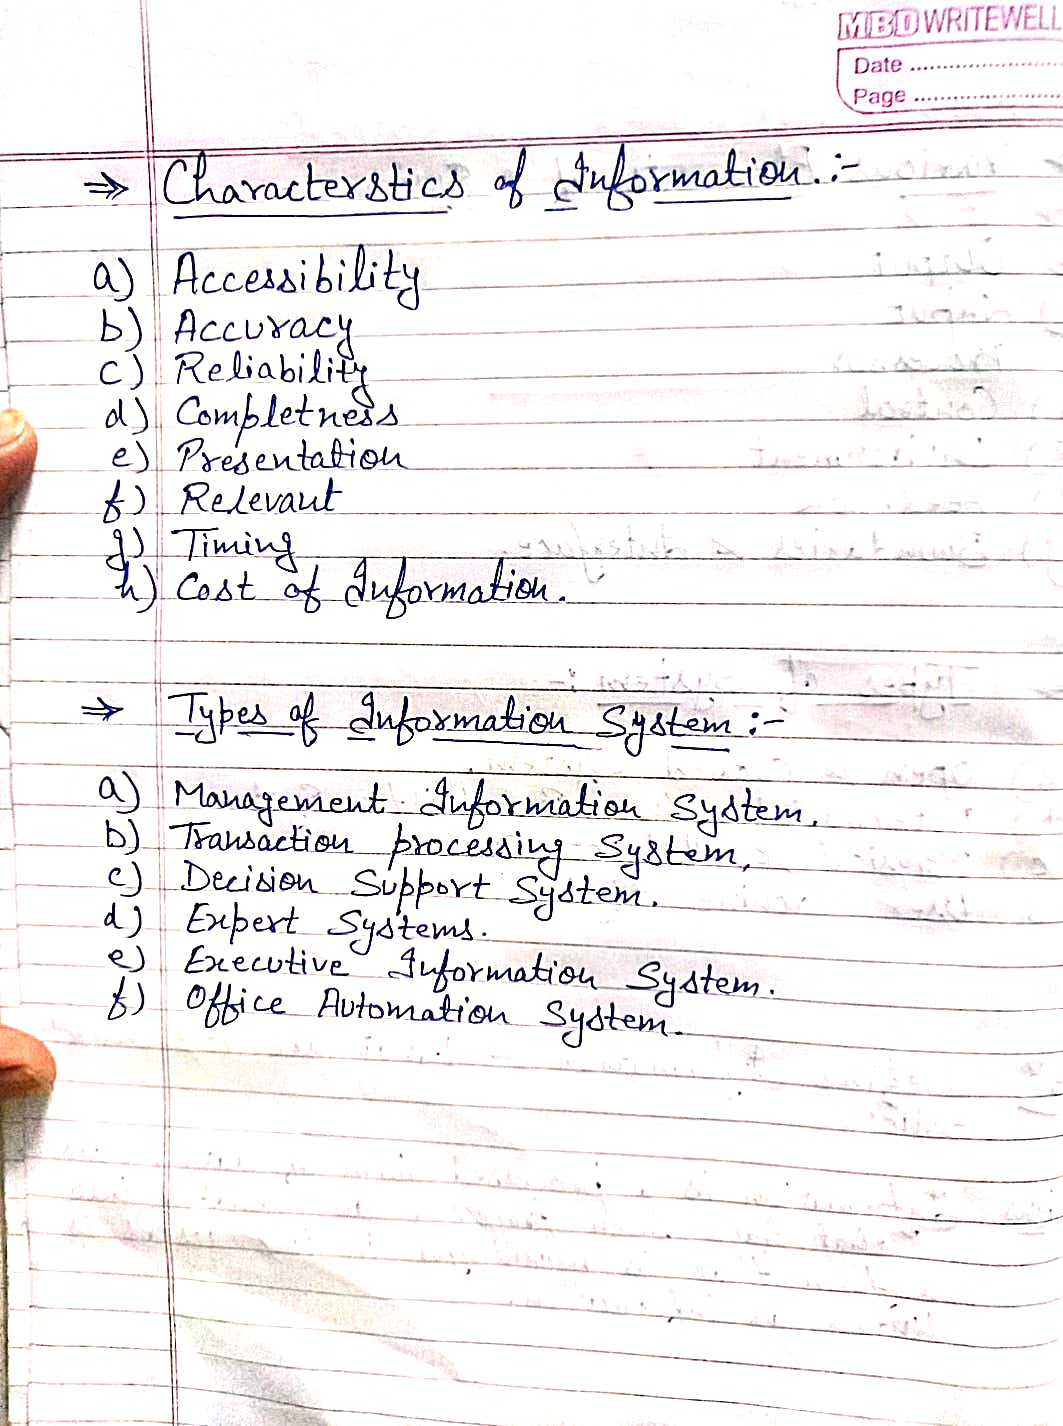 MBD WRITEWELL
Date ........................
Page ........................
⇒ Characterstics of Information. :-
a) Accessibility
b) Accuracy
c) Reliability
d) Completness
e) Presentation
f) Relevant
g) Timing
h) Cost of Information.
⇒ Types of Information System :-
a) Management Information System,
b) Transaction processing System,
c) Decision Support System.
d) Expert Systems.
e) Executive Information System.
f) Office Automation System.